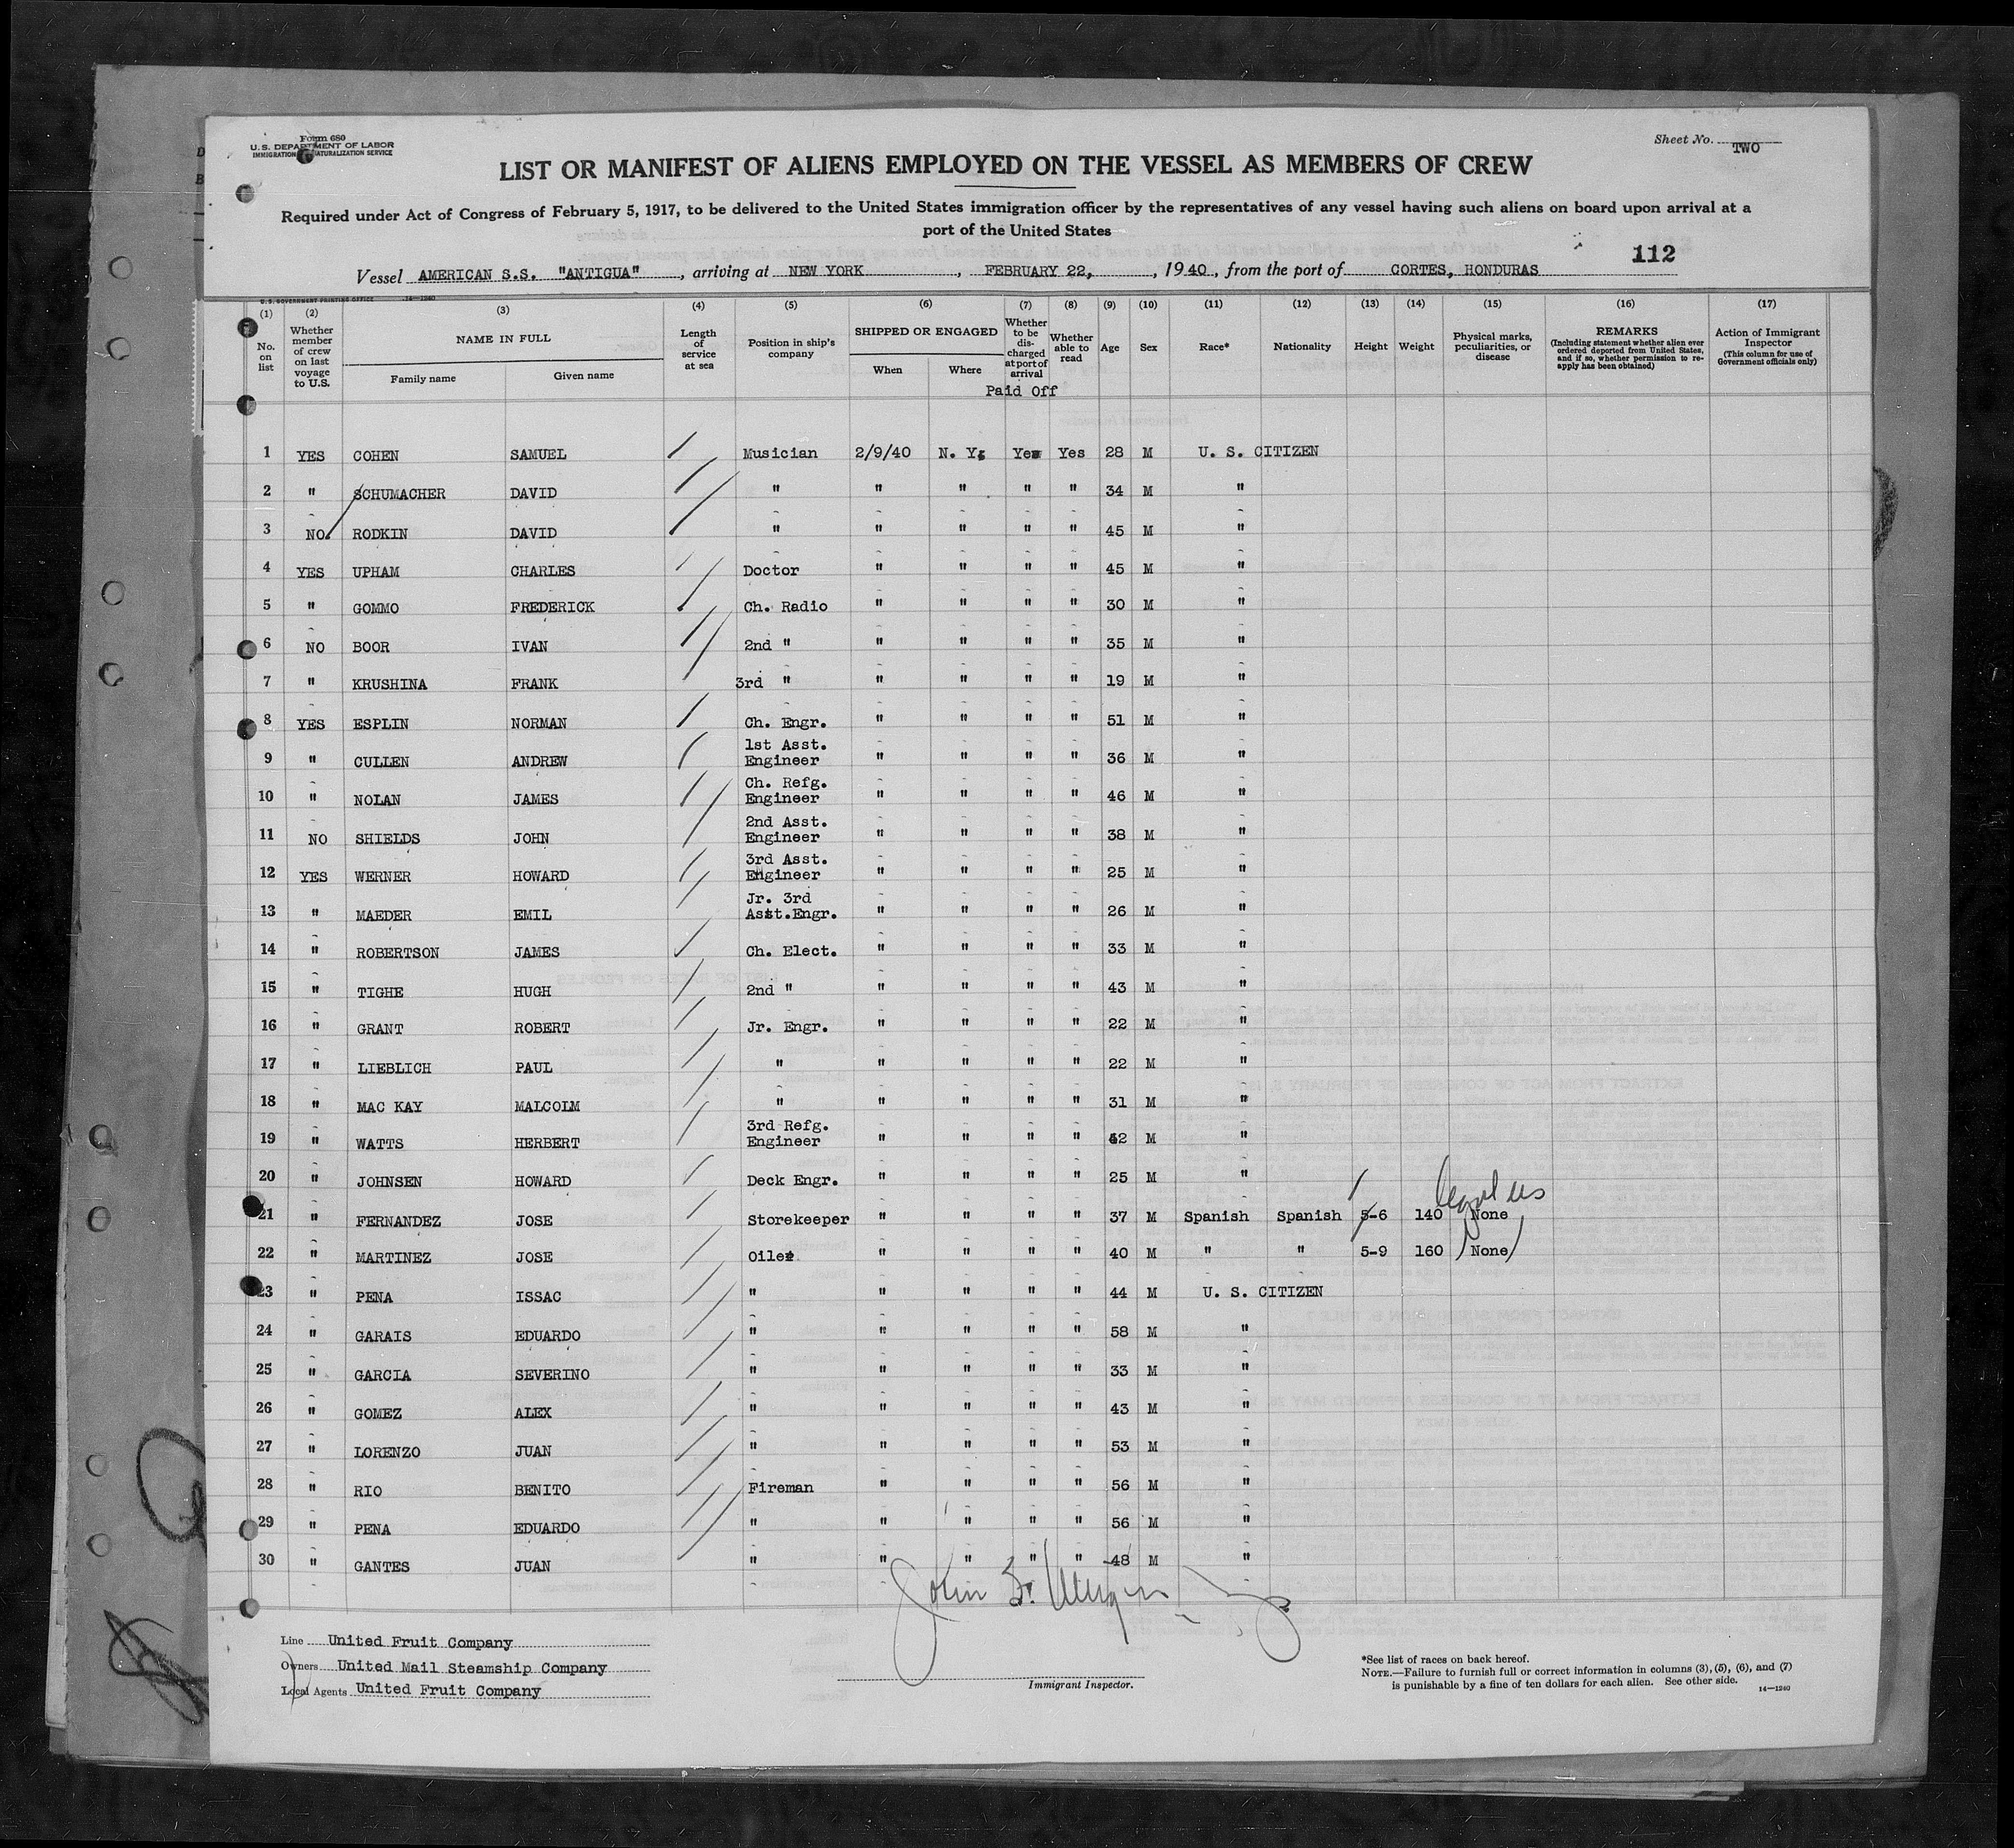 Form 680
U. S. DEPARTMENT OF LABOR
IMMIGRATION NATURALIZATION SERVICE
Sheet No. TWO
LIST OR MANIFEST OF ALIENS EMPLOYED ON THE VESSEL AS MEMBERS OF CREW
Required under Act of Congress of February 5, 1917, to be delivered to the United States immigration officer by the representatives of any vessel having such aliens on board upon arrival at a
port of the United States
112
Vessel AMERICAN S.S. "ANTIGUA", arriving at NEW YORK, FEBRUARY 22, 1940, from the port of CORTES, HONDURAS
U. S. GOVERNMENT PRINTING OFFICE 14—1240
(1) (2) (3) (4) (5) (6) (7) (8) (9) (10) (11) (12) (13) (14) (15) (16) (17)
No. on list
Whether member of crew on last voyage to U.S.
NAME IN FULL
Family name Given name
Length of service at sea
Position in ship's company
SHIPPED OR ENGAGED
When Where
Whether to be discharged at port of arrival
Whether able to read
Age Sex Race* Nationality Height Weight
Physical marks, peculiarities, or disease
REMARKS
(Including statement whether alien ever ordered deported from United States, and if so, whether permission to reapply has been obtained)
Action of Immigrant Inspector
(This column for use of Government officials only)
Paid Off
1 YES COHEN SAMUEL Musician 2/9/40 N. Y. Yes Yes 28 M U. S. CITIZEN
2 " SCHUMACHER DAVID " " " " " 34 M "
3 NO RODKIN DAVID " " " " " 45 M "
4 YES UPHAM CHARLES Doctor " " " " 45 M "
5 " GOMMO FREDERICK Ch. Radio " " " " 30 M "
6 NO BOOR IVAN 2nd " " " " " 35 M "
7 " KRUSHINA FRANK 3rd " " " " " 19 M "
8 YES ESPLIN NORMAN Ch. Engr. " " " " 51 M "
9 " CULLEN ANDREW 1st Asst. Engineer " " " " 36 M "
10 " NOLAN JAMES Ch. Refg. Engineer " " " " 46 M "
11 NO SHIELDS JOHN 2nd Asst. Engineer " " " " 38 M "
12 YES WERNER HOWARD 3rd Asst. Engineer " " " " 25 M "
13 " MAEDER EMIL Jr. 3rd Asst.Engr. " " " " 26 M "
14 " ROBERTSON JAMES Ch. Elect. " " " " 33 M "
15 " TIGHE HUGH 2nd " " " " " 43 M "
16 " GRANT ROBERT Jr. Engr. " " " " 22 M "
17 " LIEBLICH PAUL " " " " " 22 M "
18 " MAC KAY MALCOLM " " " " " 31 M "
19 " WATTS HERBERT 3rd Refg. Engineer " " " " 42 M "
20 " JOHNSEN HOWARD Deck Engr. " " " " 25 M "
21 " FERNANDEZ JOSE Storekeeper " " " " 37 M Spanish Spanish 5-6 140 None
22 " MARTINEZ JOSE Oiler " " " " 40 M " " 5-9 160 None
23 " PENA ISSAC " " " " " 44 M U. S. CITIZEN
24 " GARAIS EDUARDO " " " " " 58 M "
25 " GARCIA SEVERINO " " " " " 33 M "
26 " GOMEZ ALEX " " " " " 43 M "
27 " LORENZO JUAN " " " " " 53 M "
28 " RIO BENITO Fireman " " " " 56 M "
29 " PENA EDUARDO " " " " " 56 M "
30 " GANTES JUAN " " " " " 48 M "
Line United Fruit Company
Owners United Mail Steamship Company
Local Agents United Fruit Company
Immigrant Inspector.
*See list of races on back hereof.
NOTE.—Failure to furnish full or correct information in columns (3), (5), (6), and (7)
is punishable by a fine of ten dollars for each alien. See other side.
14—1240